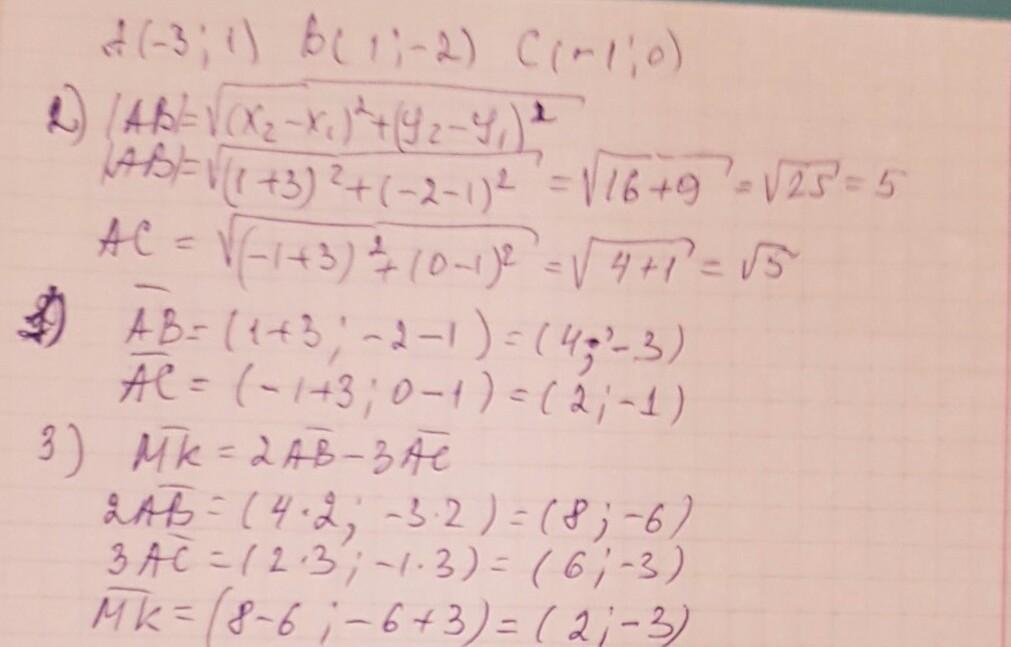 A(-3; 1) B(1; -2) C(-1; 0)
2) |AB| = √(x₂-x₁)²+(y₂-y₁)²
|AB| = √(1+3)²+(-2-1)² = √16+9 = √25 = 5
AC = √(-1+3)²+(0-1)² = √4+1 = √5
1) A̅B̅ = (1+3; -2-1) = (4; -3)
A̅C̅ = (-1+3; 0-1) = (2; -1)
3) M̅K̅ = 2A̅B̅ - 3A̅C̅
2A̅B̅ = (4·2; -3·2) = (8; -6)
3A̅C̅ = (2·3; -1·3) = (6; -3)
M̅K̅ = (8-6; -6+3) = (2; -3)